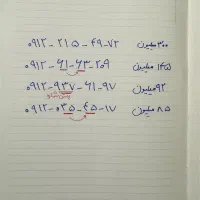 ۰۹۱۲ - ۲۱۵ - ۴۹-۷۲ ۳۰۰ میلیون
۰۹۱۲ - ۶۱ - ۶۳ - ۲۰۹ ۱۴۵ میلیون
۰۹۱۲ - ۹۳۷ - ۶۱ - ۹۷ ۹۲ میلیون
۰۹۱۲ - ۰۳۵ - ۴۵ - ۱۷ ۸۵ میلیون